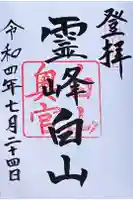 登拝
霊峰白山
白山
奥宮
令和四年七月二十四日